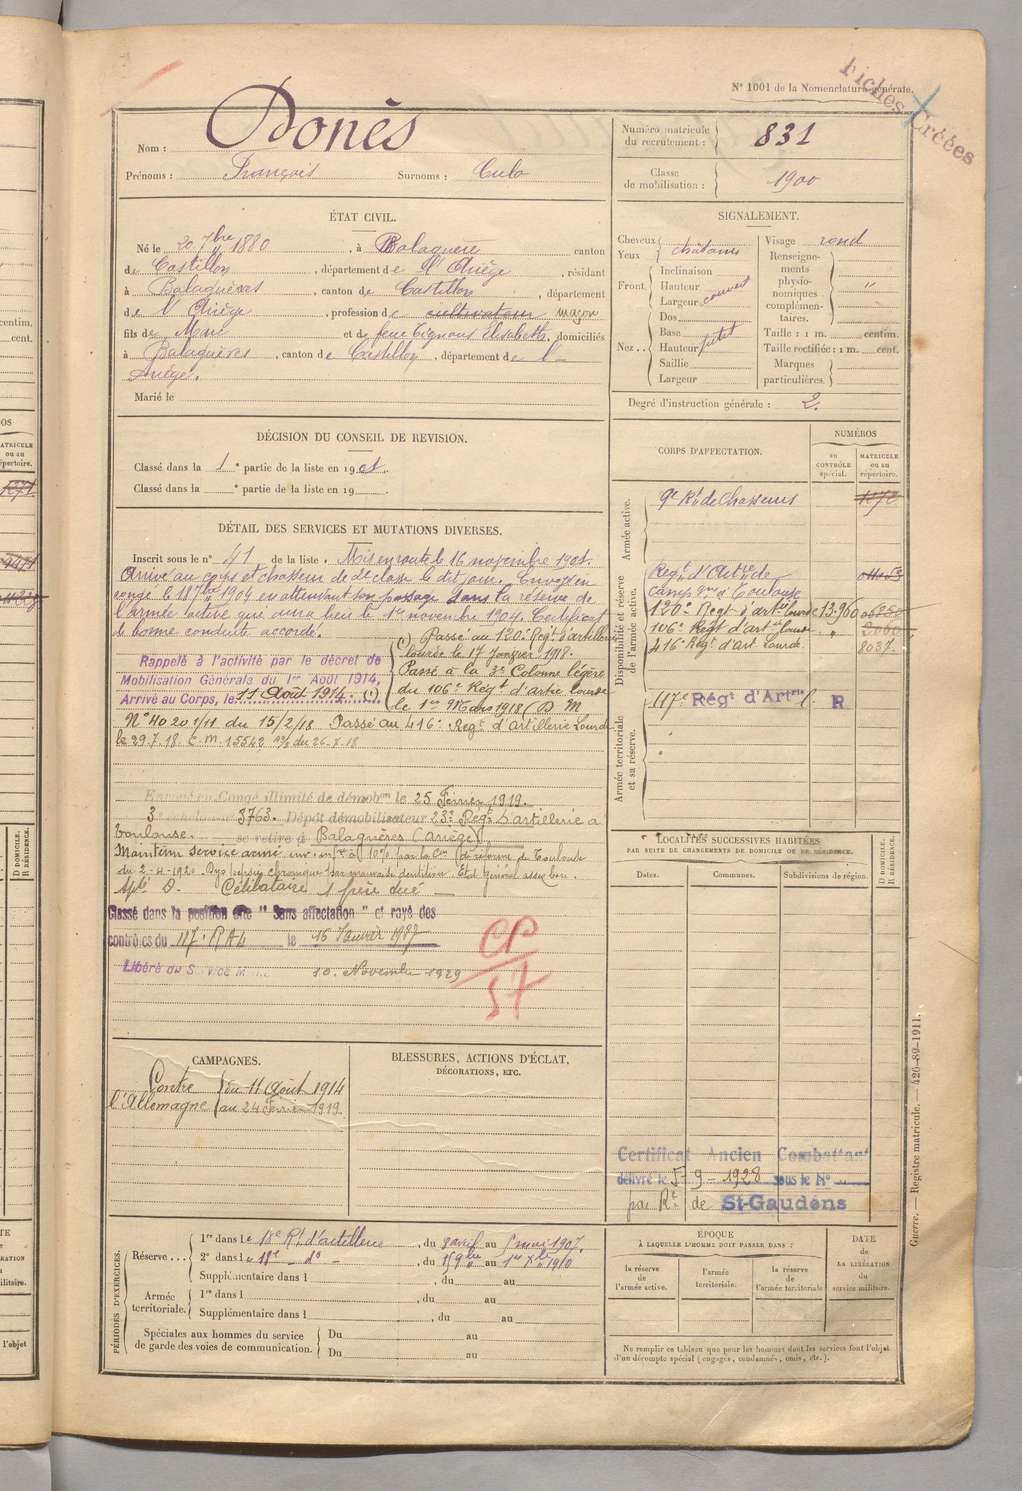 N° 1001 de la Nomenclature générale.
Fiches Créées
Nom : Donès
Prénoms : François Surnoms : Culo
Numéro matricule du recrutement : 831
Classe de mobilisation : 1900
ÉTAT CIVIL.
Né le 20 7bre 1880, à Balaguère canton
de Castillon, département de l'Ariège, résidant
à Balaguères, canton de Castillon, département
de l'Ariège, profession de cultivateur maçon
fils de et de feue Elisabeth, domiciliés
à Balaguères, canton de Castillon, département de l'
Ariège.
Marié le
SIGNALEMENT.
Cheveux châtains
Yeux
Front. Inclinaison
Hauteur
Largeur couvert
Nez.. Dos
Base
Hauteur petit
Saillie
Largeur
Visage rond
Renseignements physionomiques complémentaires. "
Taille : 1 m. centim.
Taille rectifiée : 1 m. cent.
Marques particulières.
Degré d'instruction générale : 2.
DÉCISION DU CONSEIL DE REVISION.
Classé dans la 1e partie de la liste en 1901.
Classé dans la e partie de la liste en 19
DÉTAIL DES SERVICES ET MUTATIONS DIVERSES.
Inscrit sous le n° 41 de la liste. Mis en route le 16 novembre 1901.
Arrivé au corps et chasseur de 2e classe le dit jour. Envoyé en
congé le 18 7bre 1904 en attendant son passage dans la réserve de
l'armée active qui aura lieu le 1er novembre 1904. Certificat
de bonne conduite accordé.
Rappelé à l'activité par le décret de
Mobilisation Générale du 1er Août 1914,
Arrivé au Corps, le 11 Août 1914. (1)
(1) Passé au 120e Régt d'artillerie
lourde le 17 janvier 1918.
Passé à la 3e Colonne légère
du 106e Régt d'artie lourde
le 1er Mars 1918 (D M
N° 4020 1/11 du 15/2/18 Passé au 416e Régt d'artillerie Lourde
le 29.7.18. E.M. 15542 du 26.7.18
Envoyé en Congé illimité de démobon le 25 Février 1919.
3e échelon n° 3763. Dépôt démobilisateur 23e Régt d'artillerie à
Toulouse. se retire à Balaguères (Ariège)
Maintenu service armé inv. inf. à 10% par la Con de réforme de Toulouse
du 2-4-1920. chronique par mauvaise dentition. Etat général assez bon.
Célibataire 1 frère tué
Classé dans la position dite "Sans affectation" et rayé des
contrôles du 117e RAL le 15 Janvier 1927
Libéré du Service M 10 Novembre 1929
CP
57
CORPS D'AFFECTATION.
NUMÉROS
au CONTRÔLE spécial.
MATRICULE ou au répertoire.
Armée active.
9e Rt de Chasseurs 1272
Disponibilité et réserve de l'armée active.
Régt d'Artrie de
camp gne à Toulouse
120e Régt d'artie lourde 13.960
106e Régt d'artie lourde " 2060
416e Régt d'art. Lourde 8037.
Armée territoriale et sa réserve.
117e Régt d'Artrie l. R
LOCALITÉS SUCCESSIVES HABITÉES
PAR SUITE DE CHANGEMENTS DE DOMICILE OU DE RÉSIDENCE.
Dates.
Communes.
Subdivisions de région.
D DOMICILE.
R RÉSIDENCE.
Certificat Ancien Combattant
délivré le 5 9 - 1928 sous le N°
par Rt de St-Gaudens
CAMPAGNES.
Contre l'Allemagne
du 11 Août 1914
au 24 Février 1919.
BLESSURES, ACTIONS D'ÉCLAT,
DÉCORATIONS, ETC.
PÉRIODES D'EXERCICES.
Réserve...
1re dans le 18e Rt d'artillerie, du 8 avril au 5 mai 1907.
2e dans le 18e do, du 15 9bre au 1er Xbre 1910
Supplémentaire dans l , du au
Armée territoriale.
1re dans l , du au
Supplémentaire dans l , du au
Spéciales aux hommes du service
de garde des voies de communication.
Du au
Du au
ÉPOQUE
À LAQUELLE L'HOMME DOIT PASSER DANS :
la réserve de l'armée active.
l'armée territoriale.
la réserve de l'armée territoriale
DATE de LA LIBÉRATION du service militaire.
Ne remplir ce tableau que pour les hommes dont les services font l'objet
d'un décompte spécial (engagés, condamnés, omis, etc.).
Guerre. — Registre matricule. — 426-89-1911.